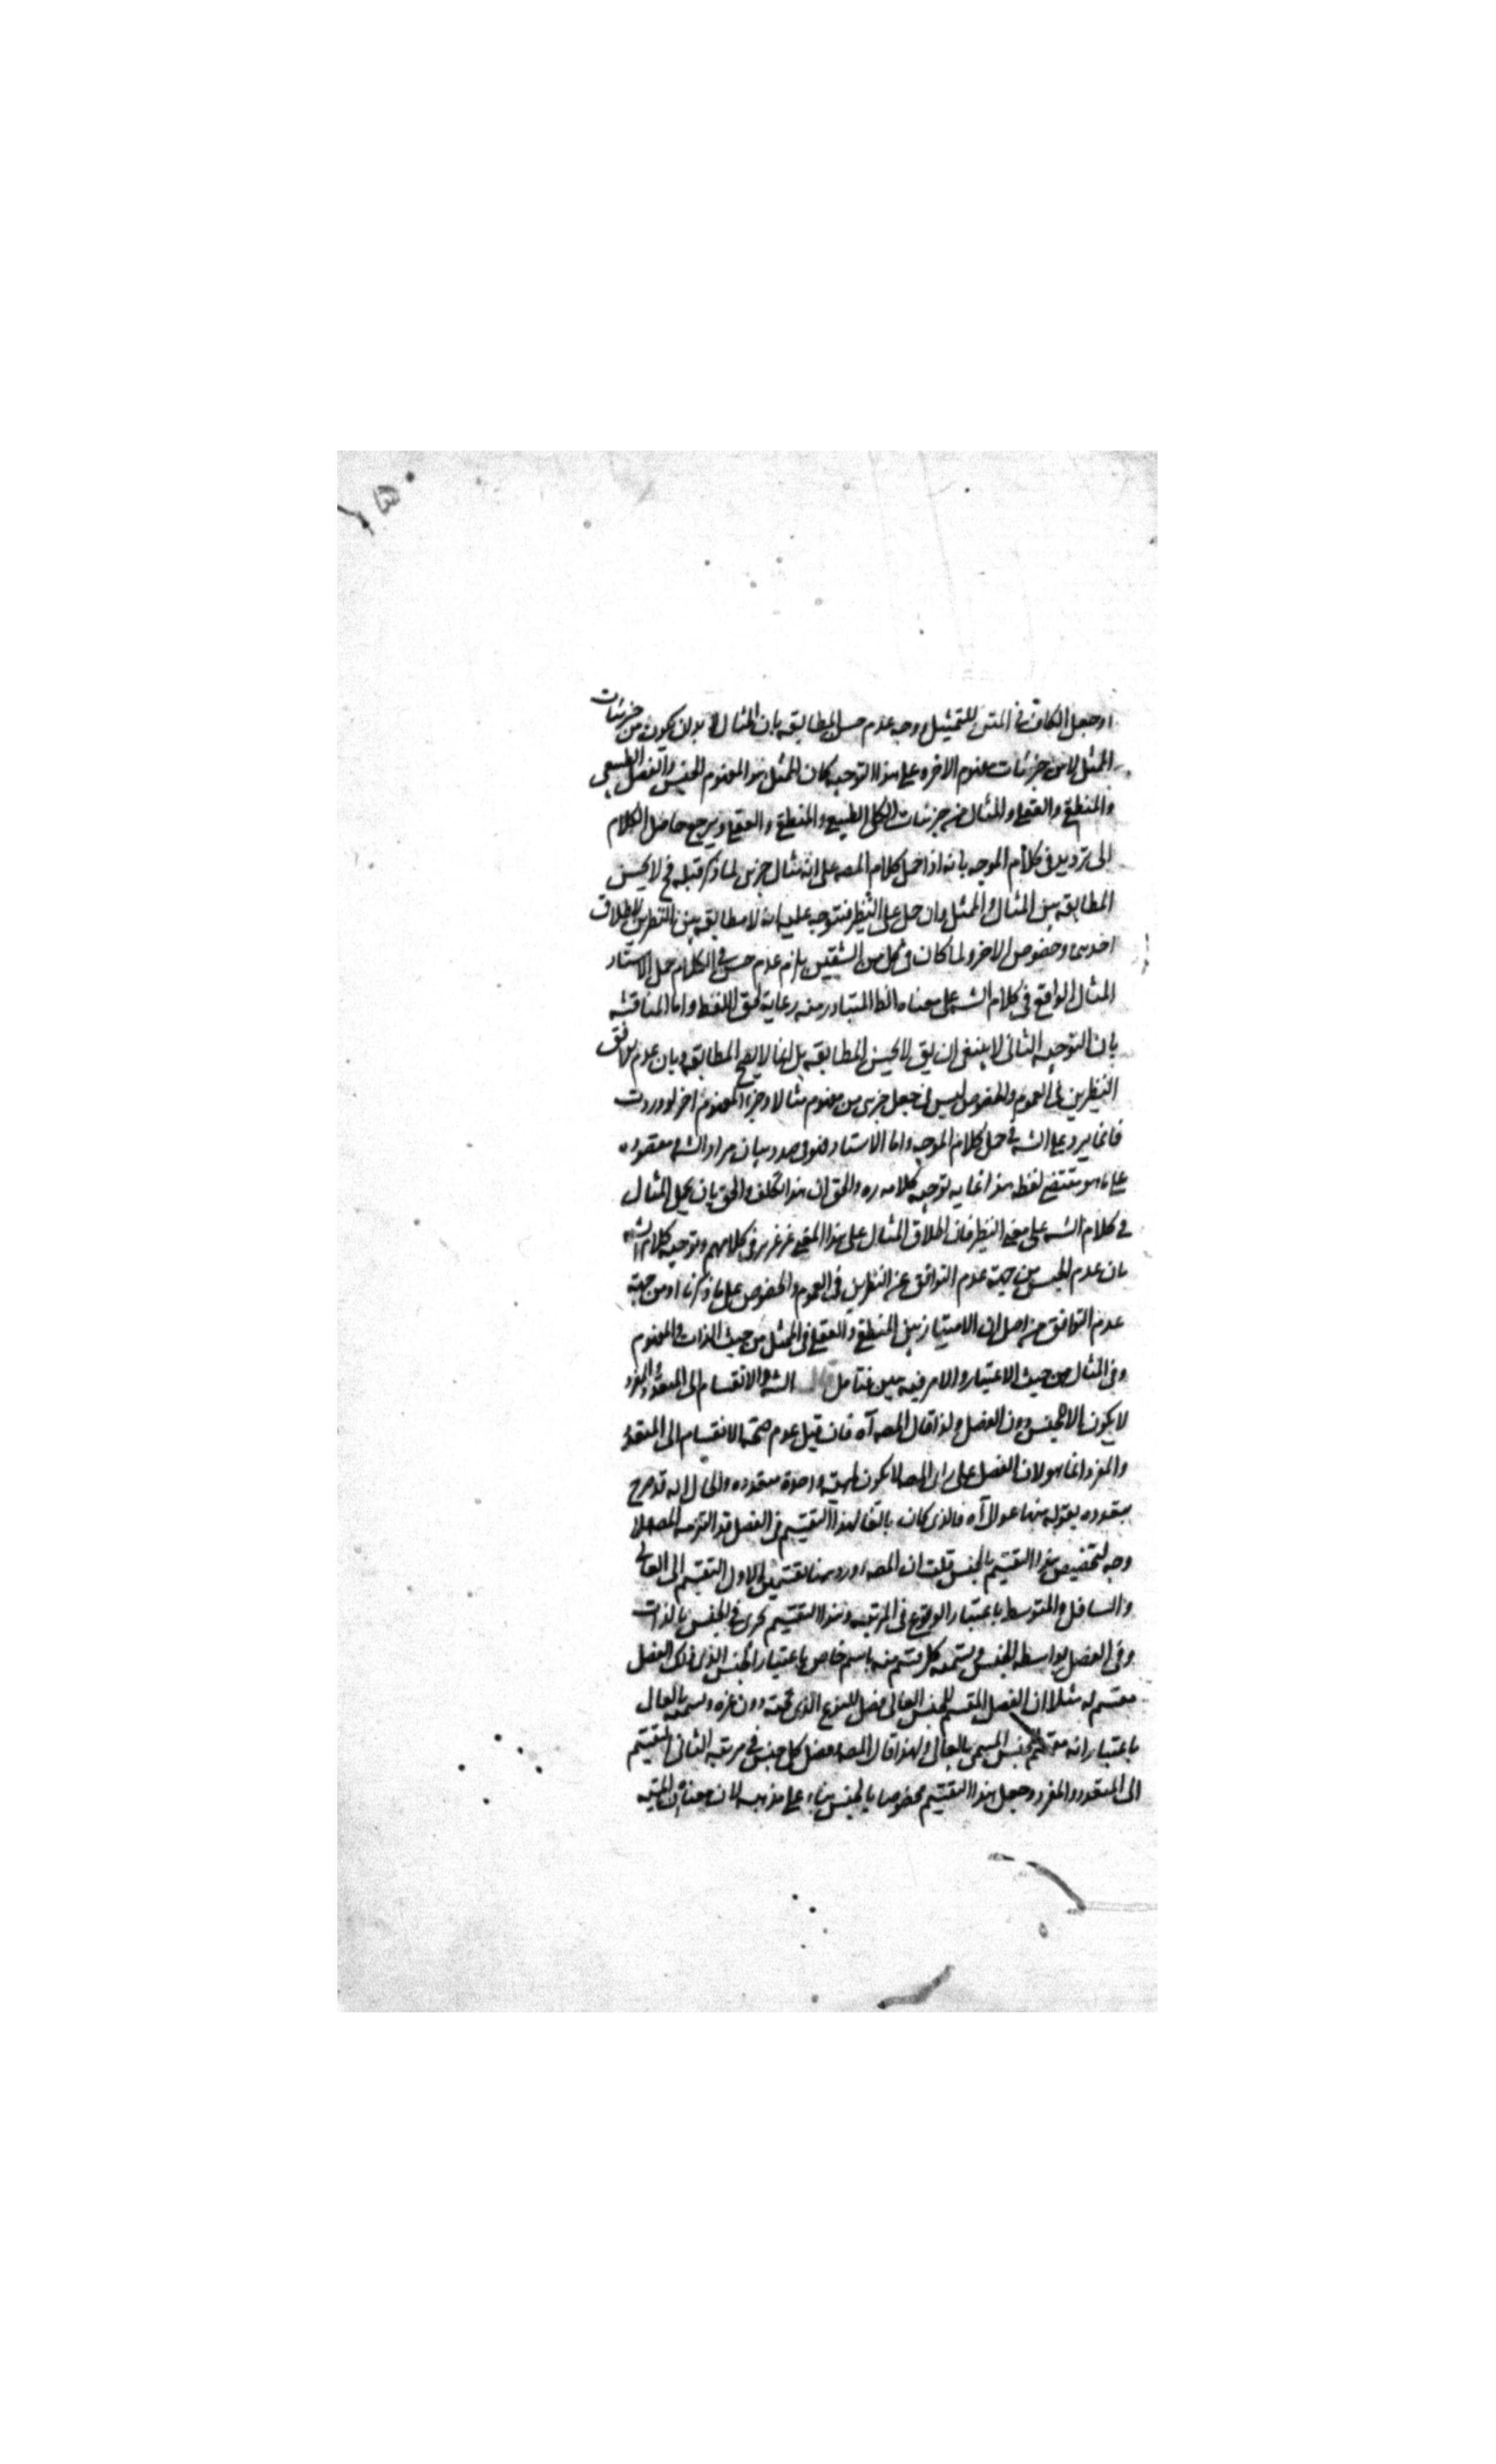 او جعل الكاف في المتن للتمثيل ووجه عدم حسن المطابقة بان المثال لا بد ان يكون من جزئيات
الممثل لا من جزئيات مفهوم الاخر وعلى هذا التوجيه كان الممثل هو المفهوم الجنس والفصل الطبيعي
والمنطقي والعقلي والمثال من جزئيات الكلي الطبيعي والمنطقي والعقلي ويرجع حاصل الكلام
الى ترديد في كلام الموجه بانه اذا حمل كلام المصه على انه مثال جزئي لما ذكر قبله فح لا يحسن
المطابقة بين المثال والممثل وان حمل على النظير فيتوجه عليه انه لا مطابقة بين النظيرين لاطلاق
احدهما وخصوص الاخر ولما كان في كل من الشقين يلزم عدم حسن في الكلام حمل الاستاد
المثال الواقع في كلام الشه على معناه الظا المتبادر منه رعاية لحق اللفظ واما المناقشة
بان التوجيه الثاني لا ينبغي ان يق لا يحسن المطابقة بل انما لا يصح المطابقة وبان عدم توافق
النظيرين في العموم والخصوص ليس في جعل جزئي من مفهوم مثالا وجزء المفهوم اخر لو وردت
فانما يرد على الشه في حمل كلام الموجه واما الاستاد فهو في صدد بيان مراد الشه ومقصوده
على ما هو مقتضى لفظه هذا غاية توجيه كلامه ره والحق ان هذا تكلف والحق بان يحمل المثال
في كلام الشه على معنى النظير فان اطلاق المثال على هذا المعنى غير غريز في كلامهم وتوجيه كلام الشه
بان عدم الحسن من جهة عدم التوافق عن النظيرين في العموم والخصوص على ما ذكرنا او من جهة
عدم التوافق من اصل ان الامتياز بين المنطقي والعقلي في الممثل من حيث الذات والمفهوم
وفي المثال من حيث الاعتبار والامر فيه هين فتامل قال الشه والانقسام الى المتعدد والمفرد
لا يكون الا للجنس دون الفصل ولذا قال المصه آه فان قيل عدم صحة الانقسام الى المتعدد
والمفرد انما هو لان الفصل على راى المصه لا يكون لمهية واحدة متعدده والحال انه قد صرح
بتعدده بقوله منها عوال آه فالذي كان بالغا لهذا التقسيم في الفصل قد التزمه المصه فلا
وجه لتخصيص هذا التقسيم بالجنس قلت ان المصه اورد هنا تقسيمين الاول التقسيم الى العالي
والسافل والمتوسط باعتبار الوقوع في المرتبه وهذا التقسيم يجرى في الجنس بالذات
وفي الفصل بواسطة الجنس ويسمى كل قسم منه باسم خاص باعتبار الجنس الذي ذلك الفصل
مقسم له مثلا ان الفصل المقسم للجنس العالي فصل للنوع الذي تحته دون غيره ويسمى بالعالي
باعتبار انه مقسم للجنس المسمى بالعالي ولهذا قال المصه وفصل كل جنس في مرتبه الثاني التقسيم
الى المتعدد والمفرد وجعل هذا التقسيم مخصوصا بالجنس بناء على مذهبه لان معناه ان المهية